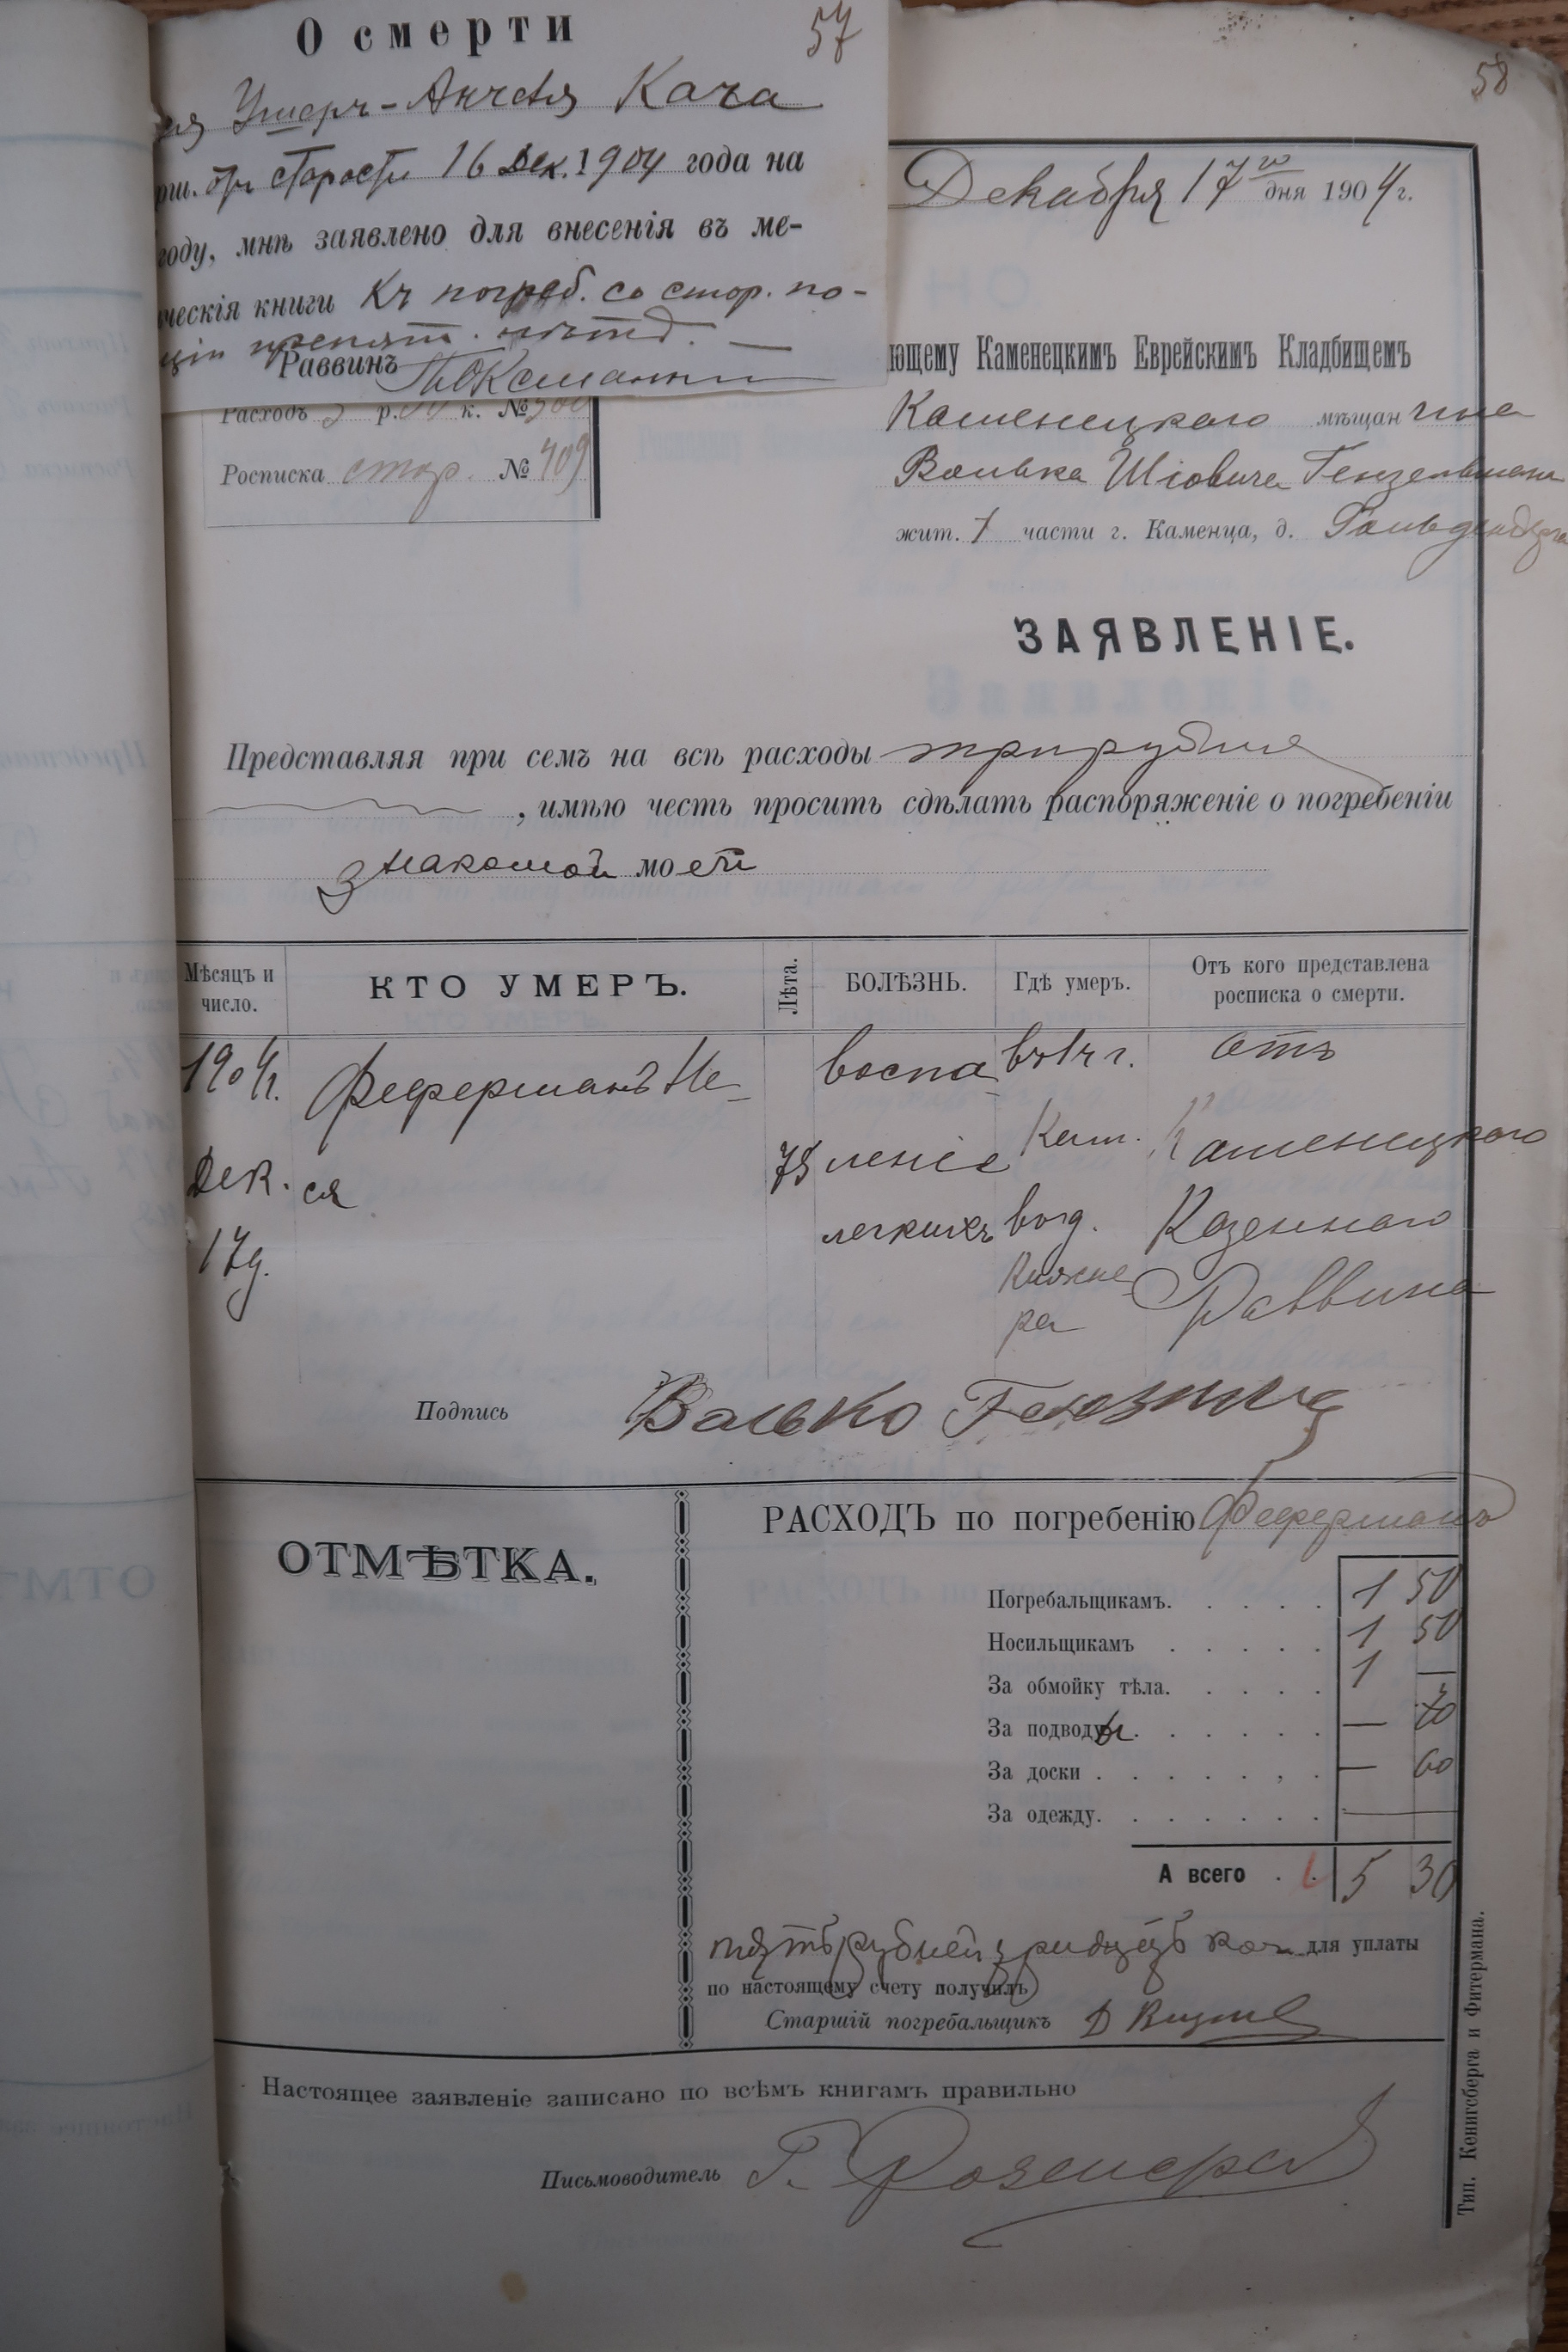 О смерти
57
58
Ушеръ-Анчеля Кача
отъ старости 16 Дек. 1904 года на
году, мнѣ заявлено для внесенія въ ме-
ческія книги Къ погреб. со стор. по-
ціи препят. нѣтъ.
Раввинъ
Декабря 17го дня 1904 г.
ющему Каменецкимъ Еврейскимъ Кладбищемъ
Каменецкого мѣщанина
Волька Шіовича
жит. 1 части г. Каменца, д. Гольденберга
Расходъ р. к. №
Росписка стор. № 409
ЗАЯВЛЕНІЕ.
Представляя при семъ на всѣ расходы три рубля
, имѣю честь просить сдѣлать распоряженіе о погребеніи
знакомой моей
Мѣсяцъ и число. КТО УМЕРЪ. Лѣта. БОЛѢЗНЬ. Гдѣ умеръ. Отъ кого представлена росписка о смерти.
1904 г. Феферманъ Не- воспа- въ 1 ч г. отъ
Дек. ся 75 леніе Кам. Каменецкого
17 д. легкихъ въ д. Казенного
Раввина
Подпись Валько
ОТМѢТКА.
РАСХОДЪ по погребенію Феферманъ
Погребальщикамъ. . . . . 1 50
Носильщикамъ . . . . . 1 50
За обмойку тѣла. . . . . 1 —
За подводы . . . . . . — 70
За доски . . . . . , . — 60
За одежду. . . . . . .
А всего . . 5 30
пять рублей тридцать коп. для уплаты
по настоящему счету получилъ
Старшій погребальщикъ Д
Настоящее заявленіе записано по всѣмъ книгамъ правильно
Письмоводитель Г.
Тип. Кенигсберга и Фитермана.